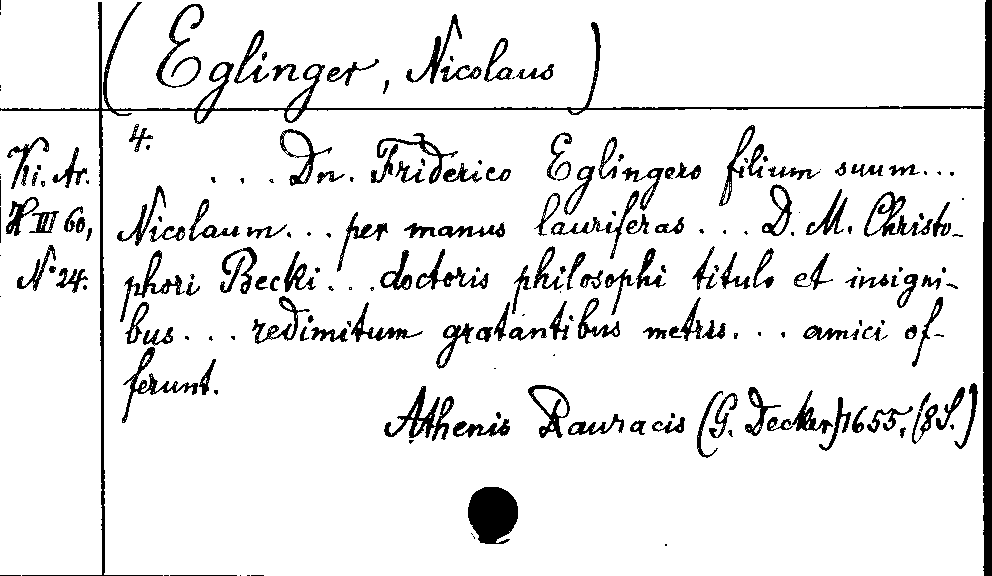 (Eglinger, Nicolaus)
4.
Ki. Ar.
H III 60,
No 24.
... Dn. Friderico Eglingero filium suum...
Nicolaum... per manus lauriferas... D. M. Christo-
phori Becki... doctoris philosophi titulo et insigni-
bus... redimitum gratantibus metris... amici of-
ferunt.
Athenis Rauracis (G. Decker) 1655. (8 S.)